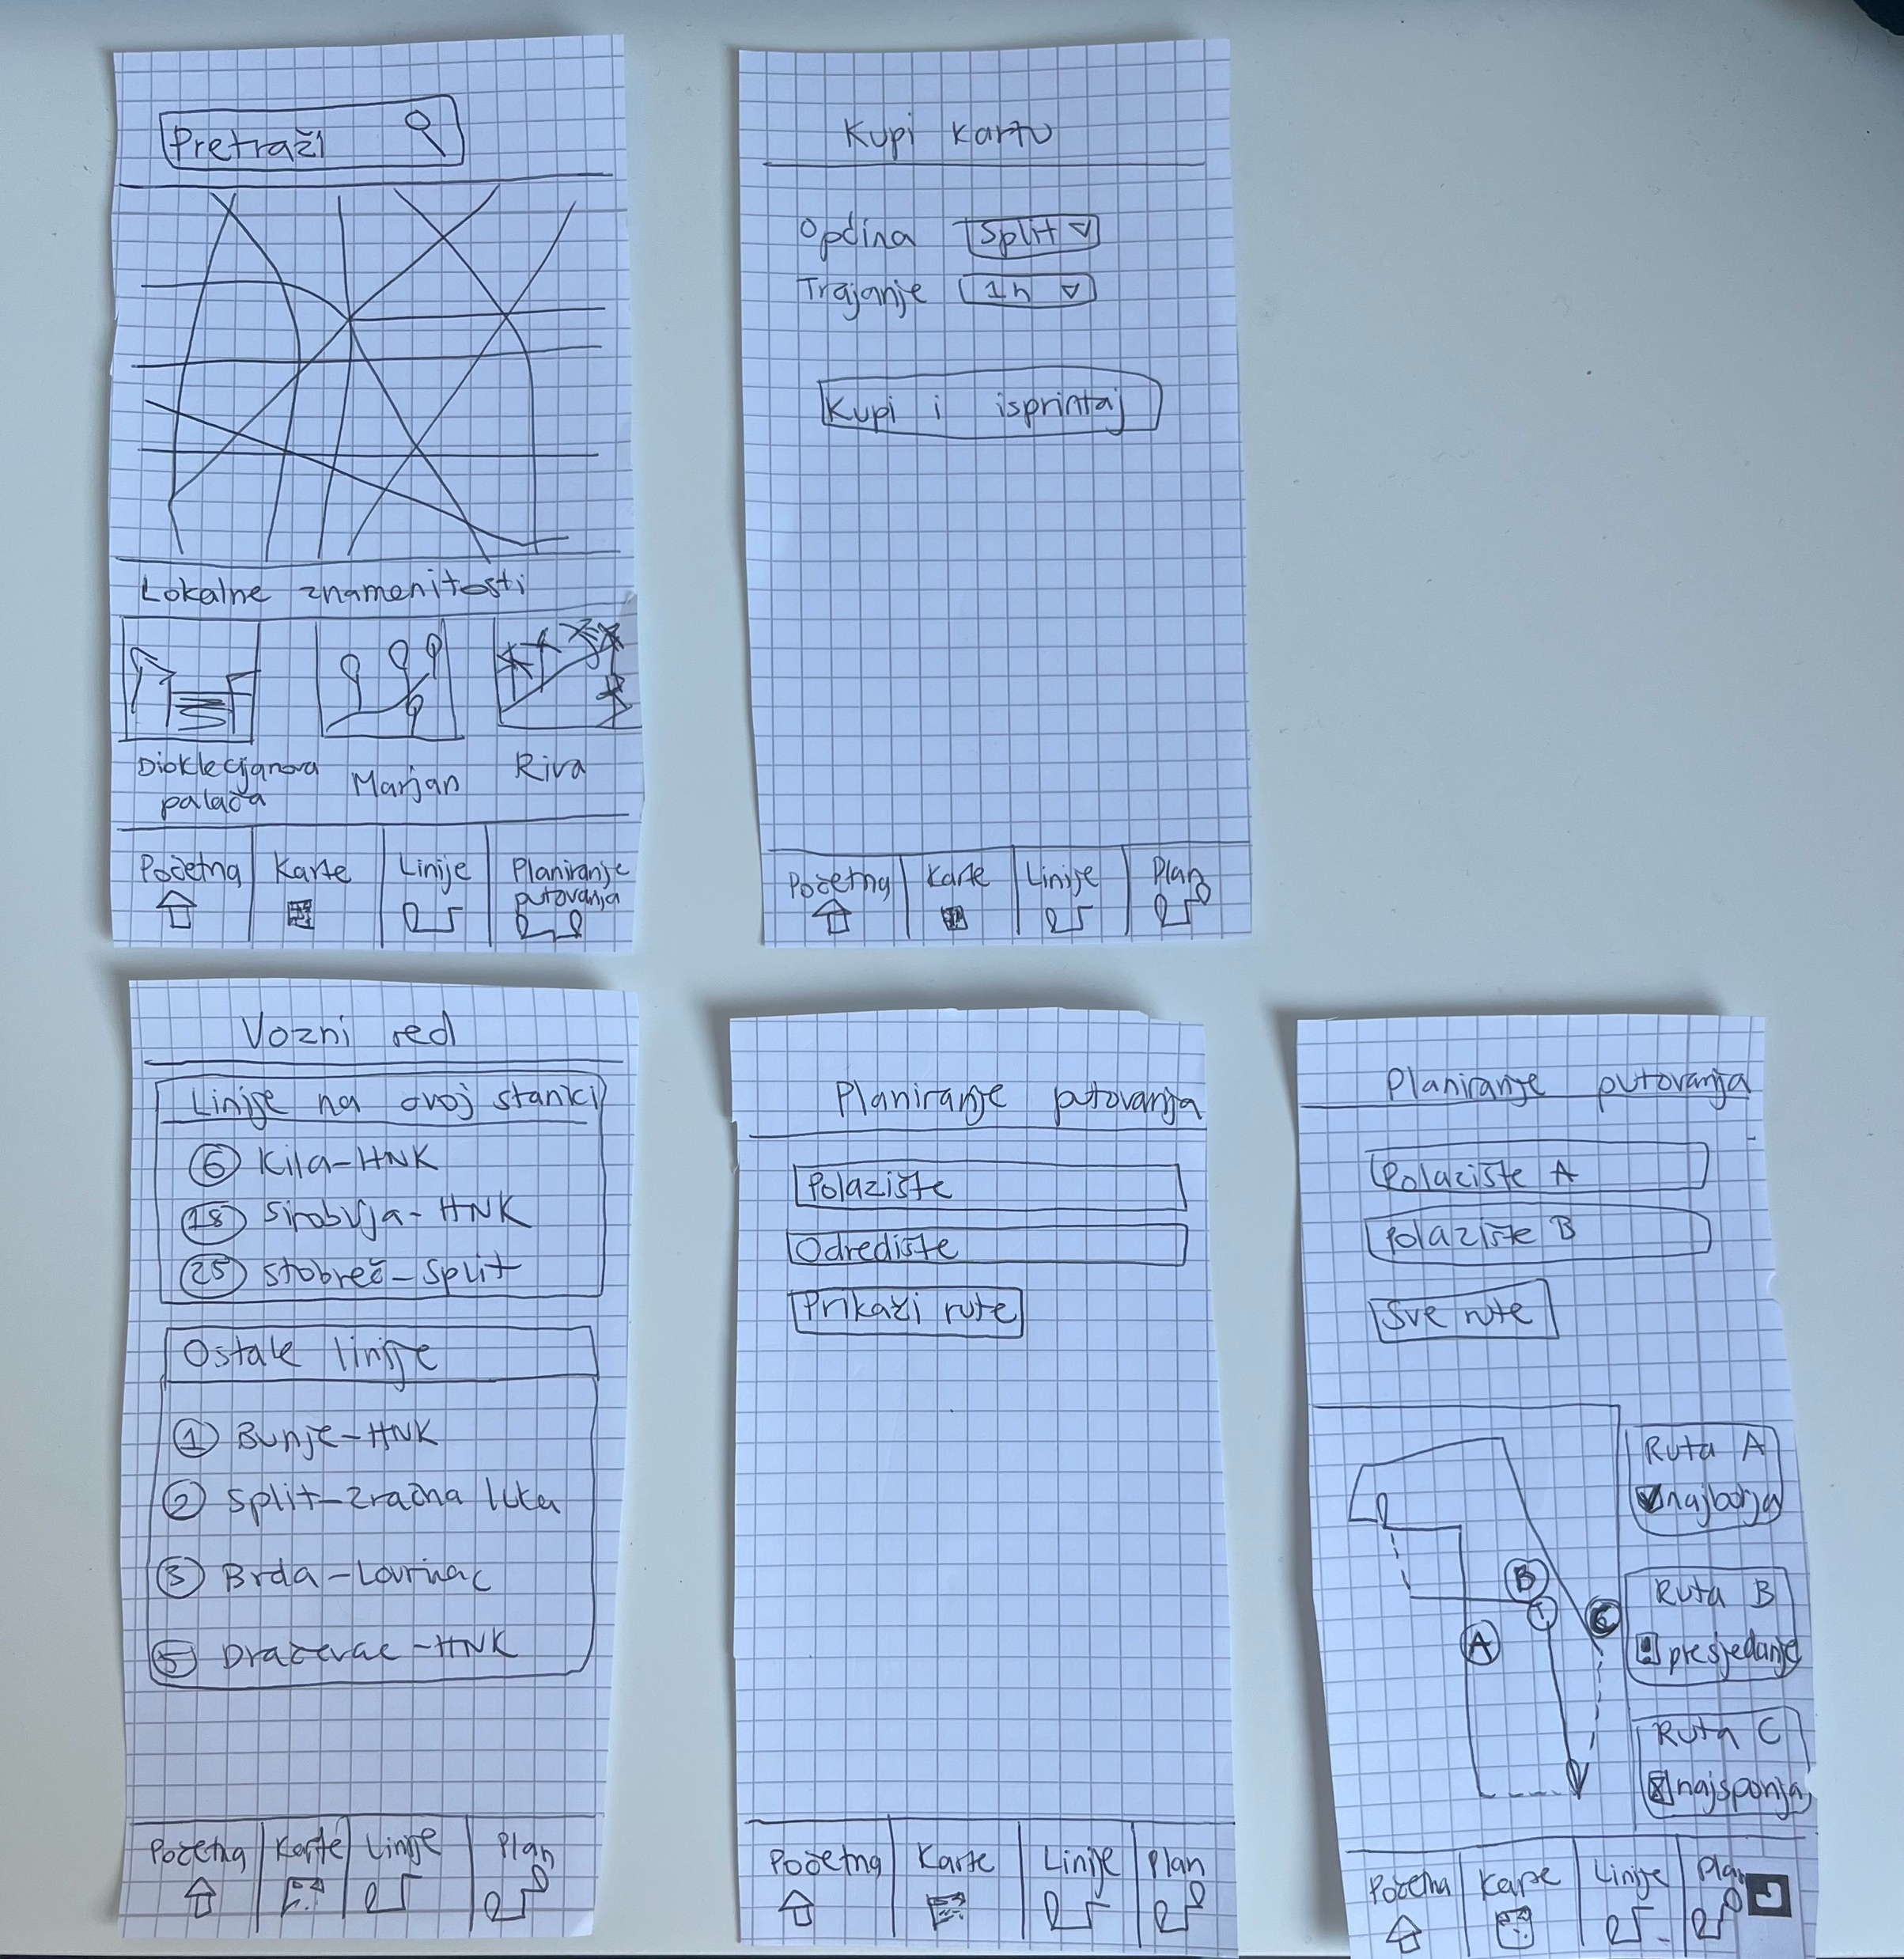 Pretraži
Lokalne znamenitosti
Dioklecijanova
palača
Marjan
Riva
Početna
Karte
Linije
Planiranje
putovanja
Kupi kartu
Općina Split
Trajanje 1h
Kupi i isprintaj
Početna
Karte
Linije
Plan
Vozni red
Linije na ovoj stanici
6 Kila-HNK
18 Sirobuja-HNK
25 Stobreč-Split
Ostale linije
1 Bunje-HNK
2 Split-Zračna luka
3 Brda-Lovrinac
5 Dračevac-HNK
Početna
Karte
Linije
Plan
Planiranje putovanja
Polazište
Odredište
Prikaži rute
Početna
Karte
Linije
Plan
Planiranje putovanja
Polazište A
Polazište B
Sve rute
Ruta A
najbolja
B
A
C
Ruta B
! presjedanje
Ruta C
x najsporija
Početna
Karte
Linije
Plan